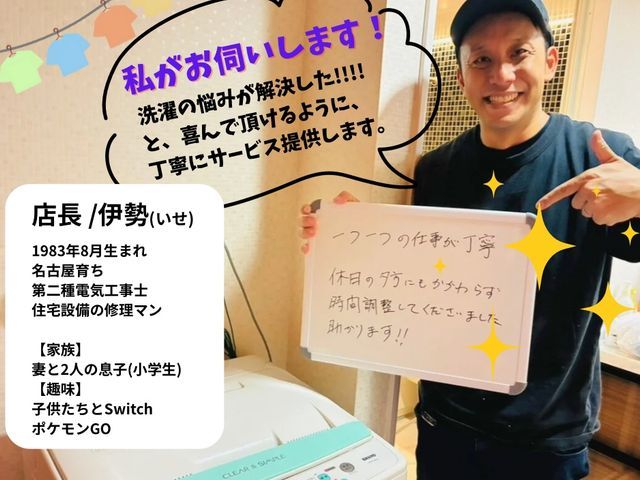 私がお伺いします！
洗濯の悩みが解決した!!!!
と、喜んで頂けるように、
丁寧にサービス提供します。
店長 /伊勢(いせ)
1983年8月生まれ
名古屋育ち
第二種電気工事士
住宅設備の修理マン
【家族】
妻と2人の息子(小学生)
【趣味】
子供たちとSwitch
ポケモンGO
一つ一つの仕事が丁寧
休日の夕方にもかかわらず
時間調整してくださいました
助かります!!
CLEAR & SIMPLE